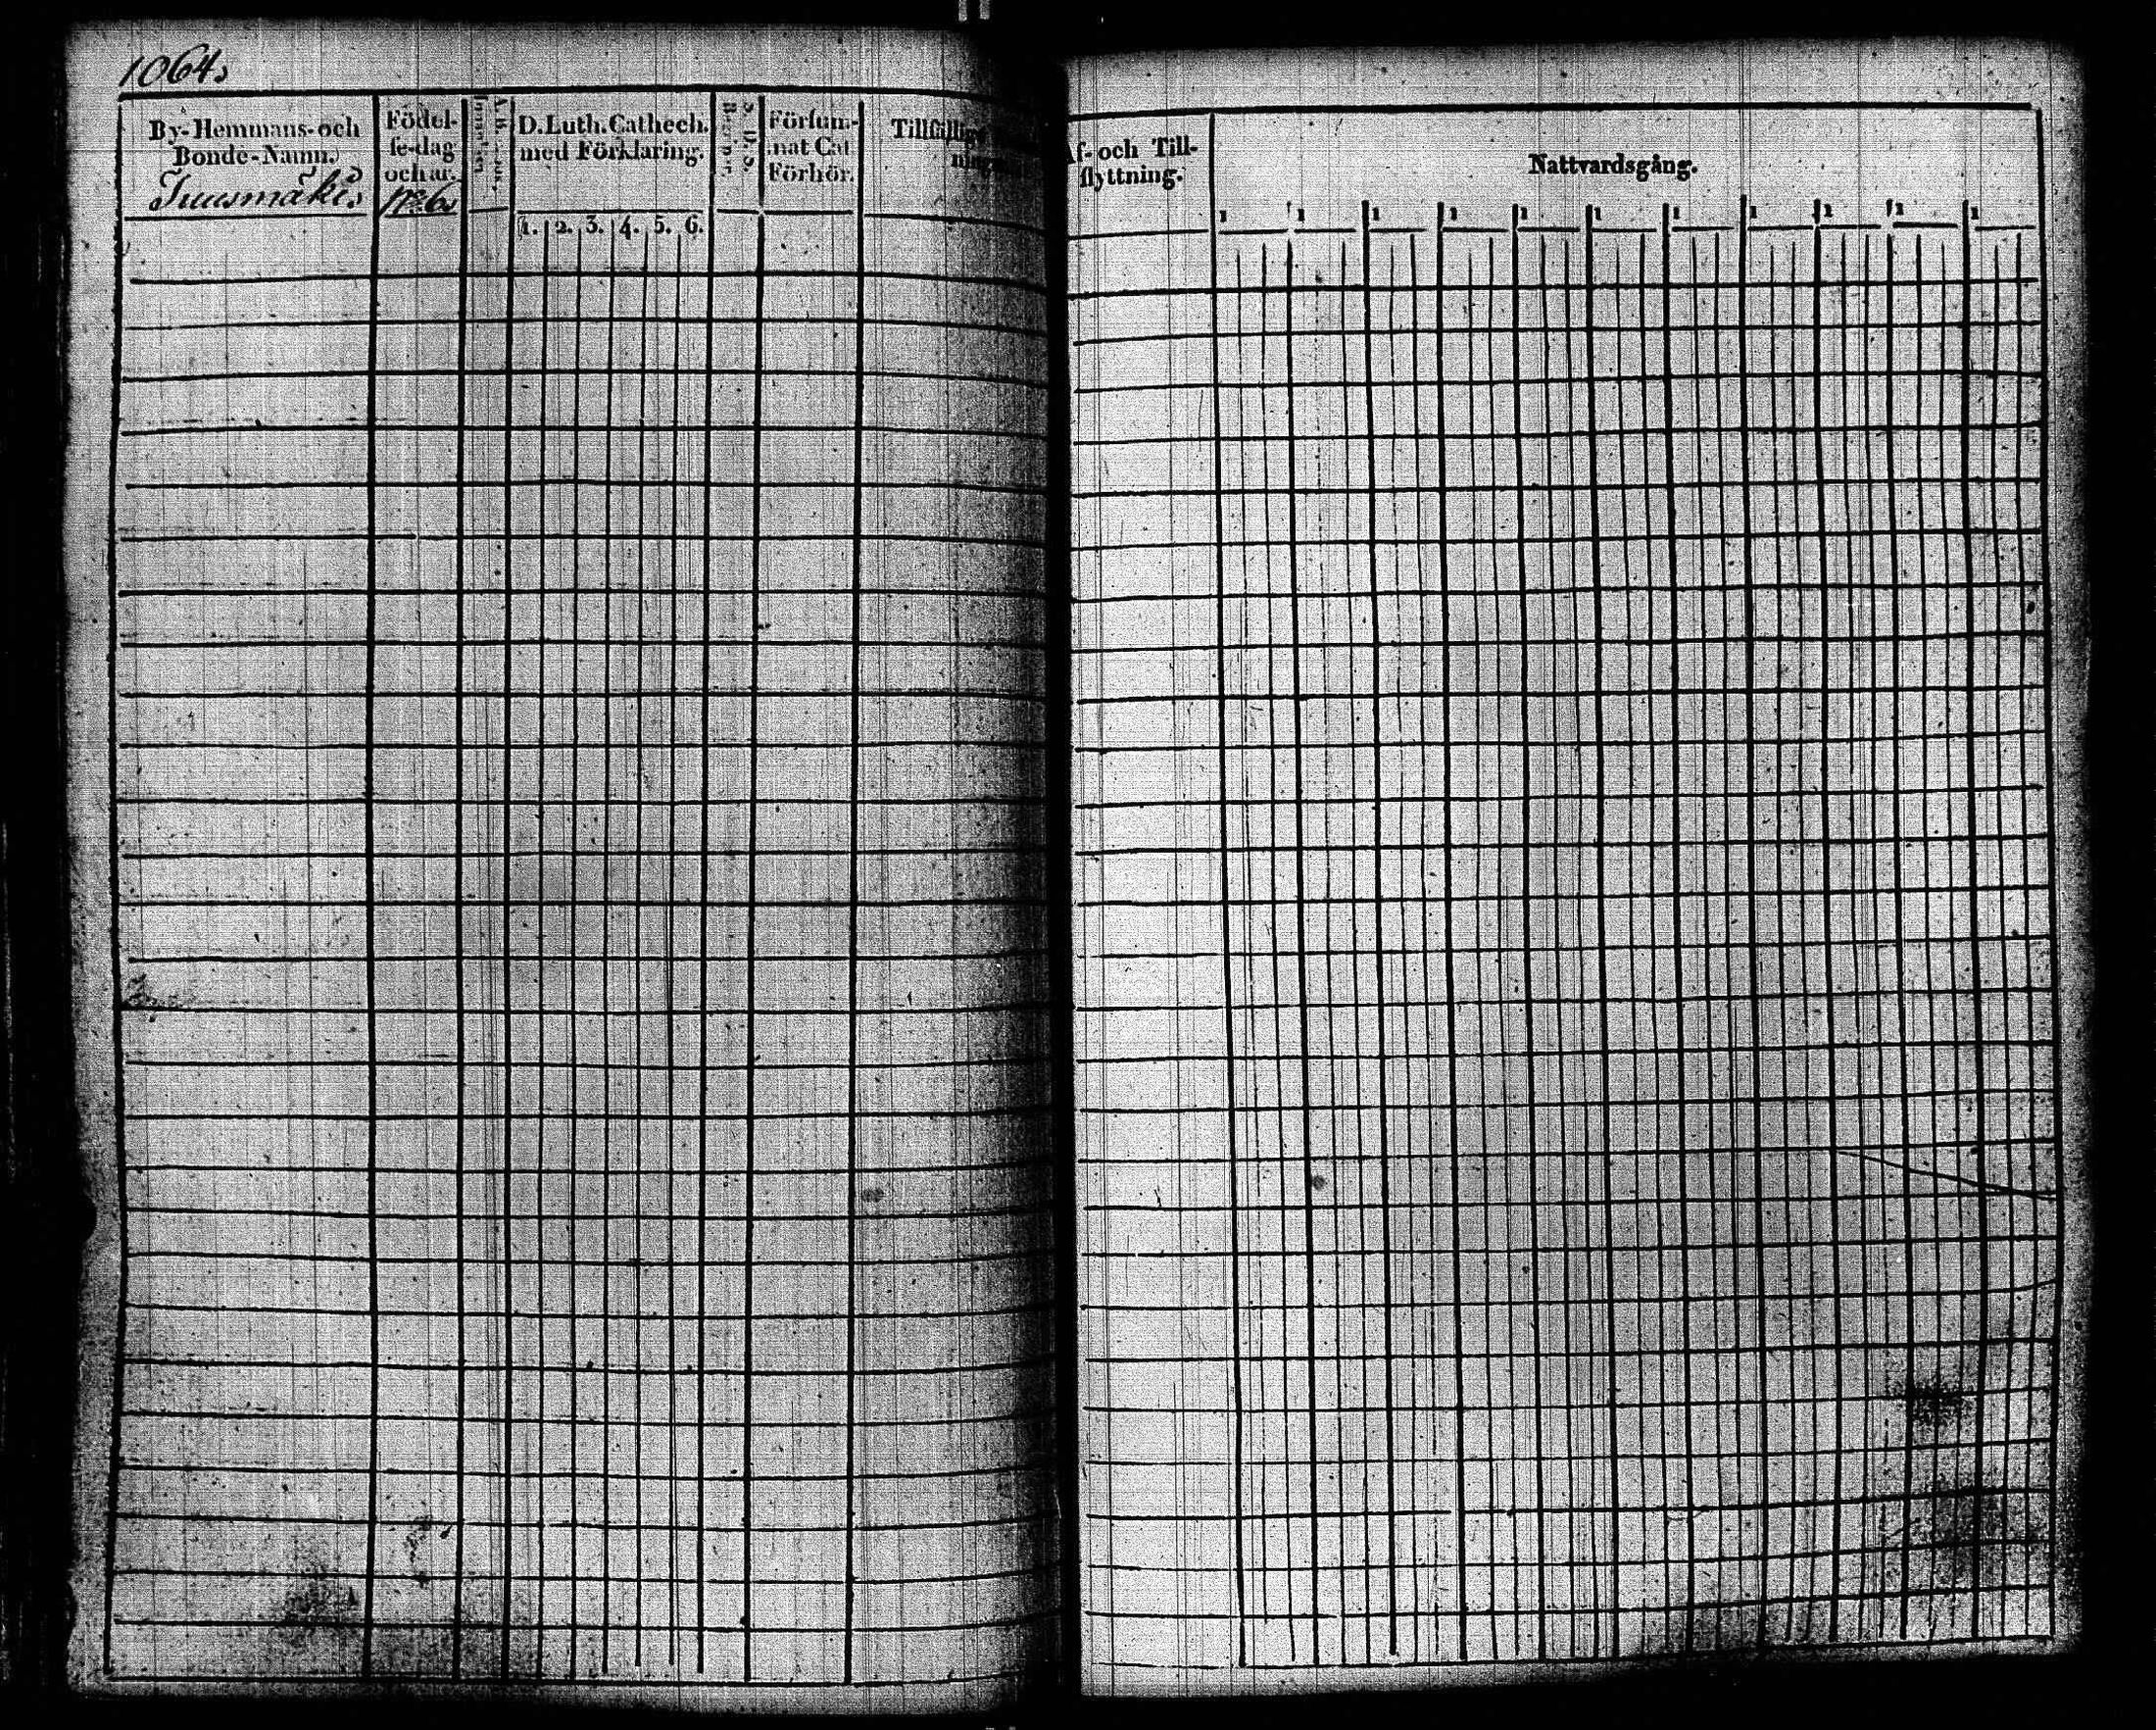 1064.
By-Hemmans- och
Bonde-Namn.
Tuusmäki.
Födel-
se-dag
och år.
No 6.
D. Luth. Cathech.
med Förklaring.
1. 2. 3. 4. 5. 6.
Försum-
nat Cat
Förhör.
Af- och Till-
flyttning.
Nattvardsgång.
1 1 1 1 1 1 1 1 1 1 1